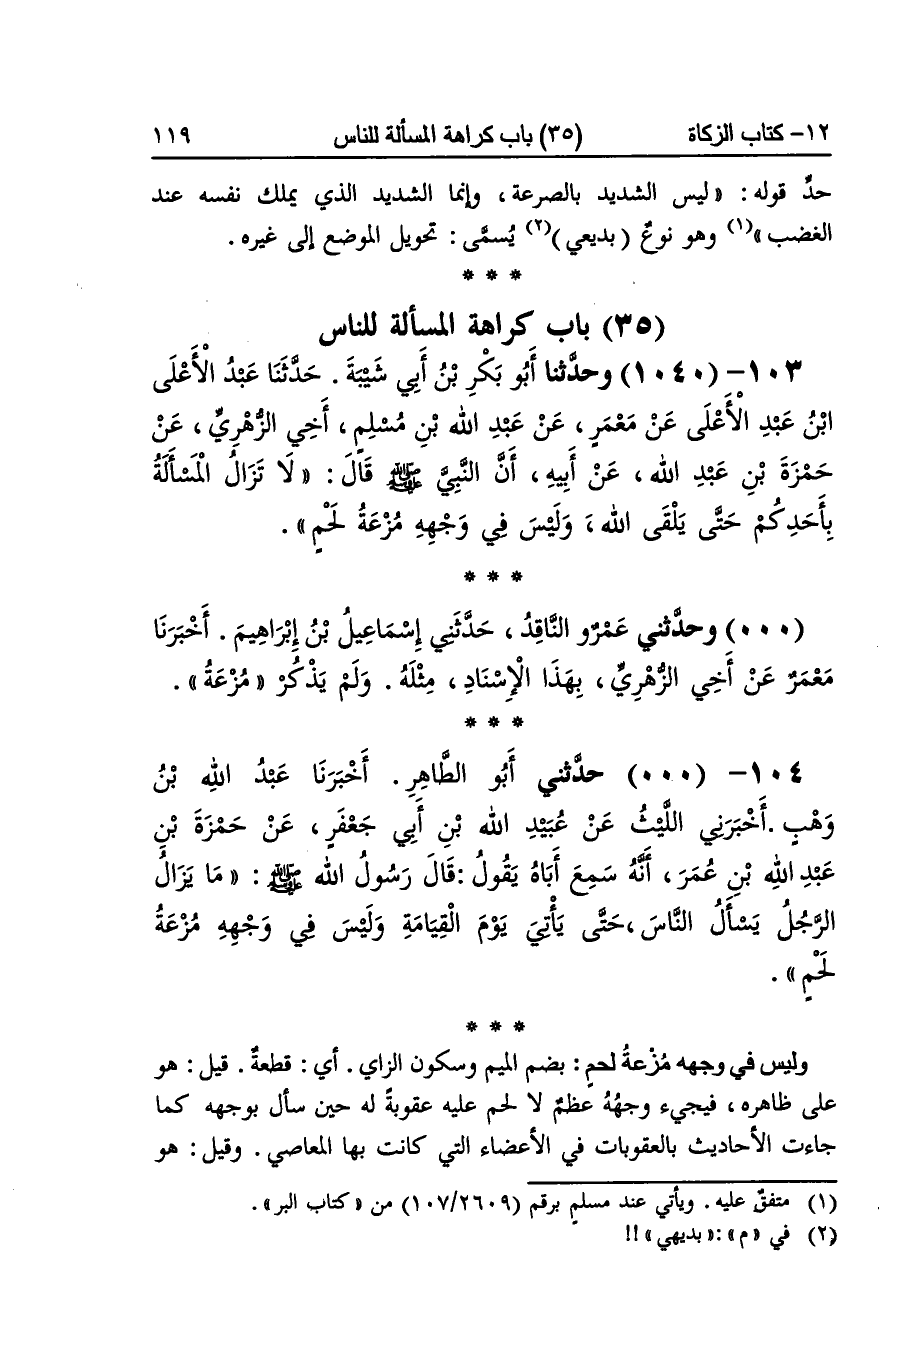 ١٢- كتاب الزكاة (٣٥) باب كراهة المسألة للناس ١١٩
حدِّ قوله: «ليس الشديد بالصرعة، وإنما الشديد الذي يملك نفسه عند
الغضب»(١) وهو نوعٌ (بديعي)(٢) يُسمَّى: تحويل الموضع إلى غيره.
* * *
(٣٥) باب كراهة المسألة للناس
١٠٣- (١٠٤٠) وحدَّثنا أَبُو بَكْرِ بْنُ أَبِي شَيْبَةَ. حَدَّثَنَا عَبْدُ الْأَعْلَى
ابْنُ عَبْدِ الْأَعْلَى عَنْ مَعْمَرٍ، عَنْ عَبْدِ الله بْنِ مُسْلِمٍ، أَخِي الزُّهْرِيِّ، عَنْ
حَمْزَةَ بْنِ عَبْدِ الله، عَنْ أَبِيهِ، أَنَّ النَّبِيَّ ﷺ قَالَ: «لَا تَزَالُ الْمَسْأَلَةُ
بِأَحَدِكُمْ حَتَّى يَلْقَى الله، وَلَيْسَ فِي وَجْهِهِ مُزْعَةُ لَحْمٍ».
* * *
(٠٠٠) وحدَّثني عَمْرٌو النَّاقِدُ، حَدَّثَنِي إِسْمَاعِيلُ بْنُ إِبْرَاهِيمَ. أَخْبَرَنَا
مَعْمَرٌ عَنْ أَخِي الزُّهْرِيِّ، بِهَذَا الْإِسْنَادِ، مِثْلَهُ. وَلَمْ يَذْكُرْ «مُزْعَةُ».
* * *
١٠٤- (٠٠٠) حدَّثني أَبُو الطَّاهِرِ. أَخْبَرَنَا عَبْدُ اللهِ بْنُ
وَهْبٍ. أَخْبَرَنِي اللَّيْثُ عَنْ عُبَيْدِ الله بْنِ أَبِي جَعْفَرٍ، عَنْ حَمْزَةَ بْنِ
عَبْدِ اللهِ بْنِ عُمَرَ، أَنَّهُ سَمِعَ أَبَاهُ يَقُولُ: قَالَ رَسُولُ الله ﷺ: «مَا يَزَالُ
الرَّجُلُ يَسْأَلُ النَّاسَ، حَتَّى يَأْتِيَ يَوْمَ الْقِيَامَةِ وَلَيْسَ فِي وَجْهِهِ مُزْعَةُ
لَحْمٍ».
* * *
وليس في وجهه مُزْعةُ لحمٍ: بضم الميم وسكون الزاي. أي: قطعةٌ. قيل: هو
على ظاهره، فيجيء وجهُهُ عظمٌ لا لحم عليه عقوبةً له حين سأل بوجهه كما
جاءت الأحاديث بالعقوبات في الأعضاء التي كانت بها المعاصي. وقيل: هو
(١) متفقٌ عليه. ويأتي عند مسلمٍ برقم (١٠٧/٢٦٠٩) من «كتاب البر».
(٢) في «م»: «بديهي»!!